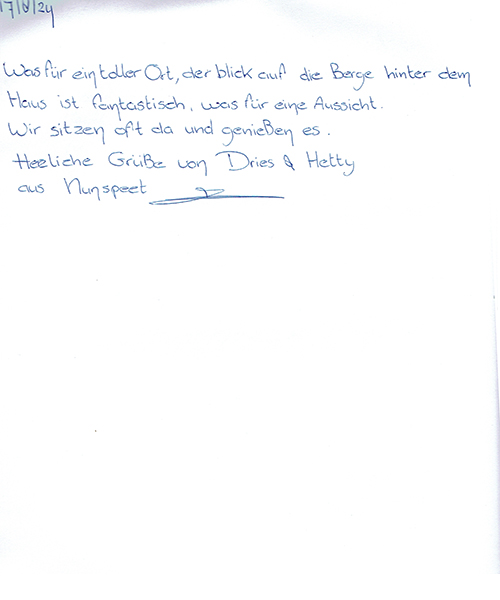 17/8/24
Was für ein toller Ort, der blick auf die Berge hinter dem
Haus ist fantastisch, was für eine Aussicht.
Wir sitzen oft da und genießen es.
Heeliche Grüße von Dries & Hetty
aus Nunspeet